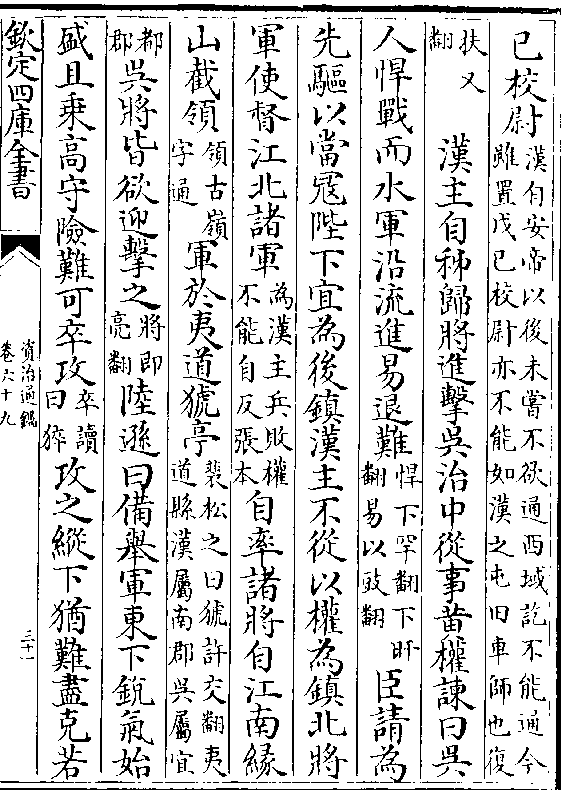 已校尉漢自安帝以後未嘗不欲通西域訖不能通今雖置戊已校尉亦不能如漢之屯旧車師也復
扶又翻漢主自秭歸將進擊吳治中從事黄權諫曰吳
人悍戰而水軍沿流進易退難悍下罕翻下旰翻易以豉翻臣請為
先驅以當冦陛下宜為後鎮漢主不從以權為鎮北將
軍使督江北諸軍為漢主兵敗權不能自反張本自率諸將自江南縁
山截領領古嶺字通軍於夷道猇亭裴松之曰猇許交翻夷道縣漢屬南郡吳屬宜
都郡吳將皆欲迎擊之將即亮翻陸遜曰備舉軍東下銳氣始
盛且乘高守險難可卒攻卒讀曰猝攻之縱下猶難盡克若
欽定四庫全書
資治通鑑
卷六十九
三十一